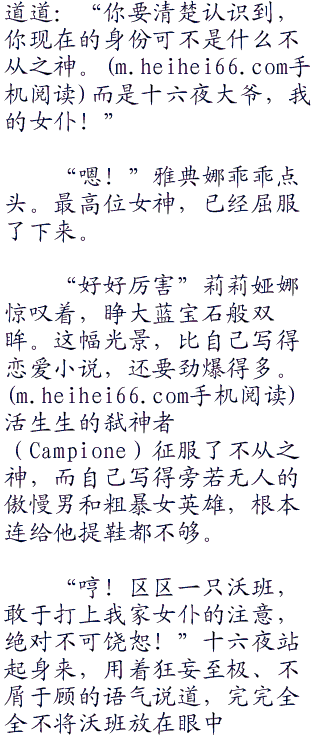 道道：“你要清楚认识到，
你现在的身份可不是什么不
从之神。(m.heihei66.com手
机阅读)而是十六夜大爷，我
的女仆！”
“嗯！”雅典娜乖乖点
头。最高位女神，已经屈服
了下来。
“好好厉害”莉莉娅娜
惊叹着，睁大蓝宝石般双
眸。这幅光景，比自己写得
恋爱小说，还要劲爆得多。
(m.heihei66.com手机阅读)
活生生的弑神者
（Campione）征服了不从之
神，而自己写得旁若无人的
傲慢男和粗暴女英雄，根本
连给他提鞋都不够。
“哼！区区一只沃班，
敢于打上我家女仆的注意，
绝对不可饶恕！”十六夜站
起身来，用着狂妄至极、不
屑于顾的语气说道，完完全
全不将沃班放在眼中